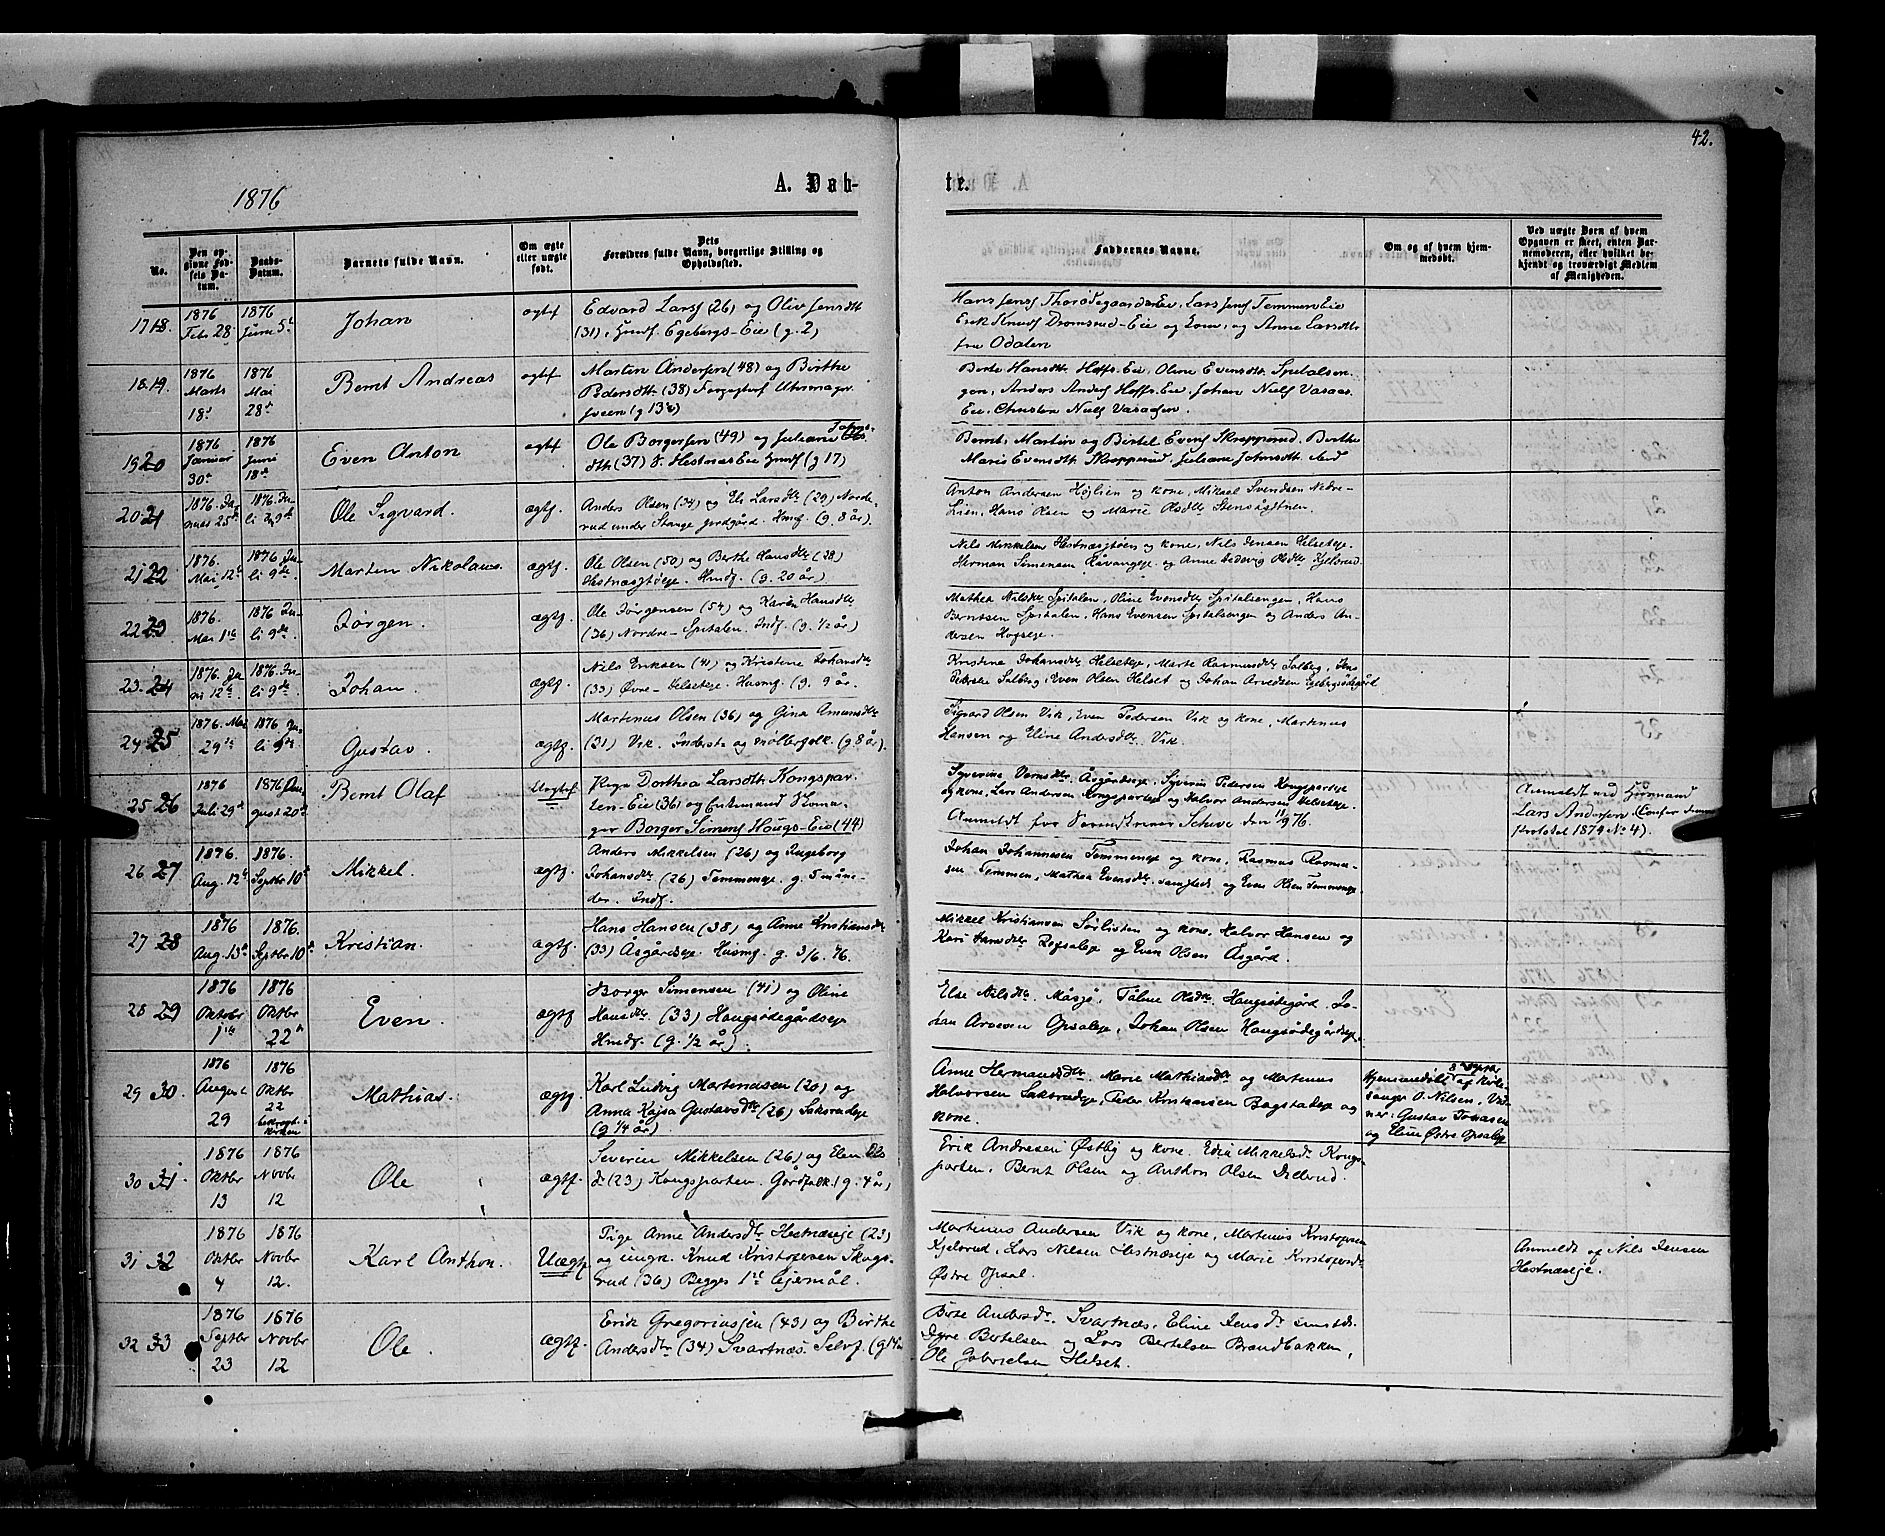 42.
1876
A. Døb-
te.
No.
Den op-
givne Fød-
sels Da-
tum.
Daabs-
Datum.
Barnets fulde Navn.
Om ægte
eller uægte
født.
Dets
Forældres fulde Navn, borgerlige Stilling og
Opholdssted.
Faddernes Navne.
Om og af hvem hjem-
medøbt.
Ved uægte Børn af hvem
Opgaven er skeet, enten Bar-
nemoderen, eller hvilket be-
kjendt og troværdigt Medlem
af Menigheden.
17 18.
1876
Feb. 28
1876
Juni 5t
Johan
ægtf
Edvard Larsf (26) og Oliv Jensdt
(31), Husf. Egebergs-Eie (g. 2)
Hans Jensf Lars Jensf Temmen Eie
Erik Knudsf og Kone, og Anne Larsdtr
fra Odalen
18 19.
1876
Marts
18d
1876
Mai
28d
Bernt Andreas
ægtf
Martin Andersen (48) og Birthe
Pedersdtr. (38)
(g 13)
Berte Hansdtr. Hoffs Eie, Oline Evensdtr. Spitalen-
gen, Anders Andersf Hoffs Eie, Johan Nielsf
Eie, Christen Nielsf
19 20
1876
Januar
30t
1876
Juni
18de
Even Anton
ægtf
Ole Borgersen (49) og Juliane Johns-
dtr. (37) S. Hestnæs Eie Husf (g 17)
Bernt, Martin og Bertel Evensf Skrepperud, Berthe
Marie Evensdtr. Skrepperud, Juliane Johnsdtr.
20 21
1876. Ja-
nuar 25de
1876. Ju-
li 9de
Ole Sigvard.
ægtf.
Anders Olsen (34) og Eli Larsdtr (29) Norde-
rud under Stange prestgård. Husf. (g. 8 år).
Anton Andersen Højlien og kone, Mikael Svendsen Nedre-
Lien, Hans Olsen og Marie Olsdtr
21 22
1876.
Mai 12te
1876. Ju-
li 9de
Marten Nikolaus.
ægtf.
Ole Olsen (50) og Berthe Hansdtr (38)
Husf. (g. 20 år).
Nils Mikkelsen og kone, Nils Jensen Helseteje.
Herman Simensen og Anne Hedevig Olsdtr Kjelsrud.
22 23
1876.
Mai 1ste
1876 Ju-
li 9de
Jørgen.
ægtf.
Ole Jørgensen (54) og Karen Hansdtr
(36) Nordre-Spitalen. Indf. (g. 1/2 år)
Mathea Nilsdtr Spitalen, Oline Evensdtr Spitalengen, Hans
Berntsen Spitalen, Hans Evensen Spitalengen og Anders An-
dersen Hofseje.
23 24
1876. Ju-
ni 12te
1876. Ju-
li 9de
Johan.
ægtf.
Nils Eriksen (41) og Kristine Johansdtr
(33) Øvre-Helseteje. Husmf. (g. 9 år.
Kristine Johansdtr Helseteje, Marte Rasmusdtr Solberg, Jens
Pedersen Solberg, Even Olsen Helset og Johan Arvedsen Egebergsødegård
24 25
1876. Mai
29de
1876 Ju-
li 9de
Gustav.
ægtf.
Martinus Olsen (36) og Gina Amundsdtr
(31) Vik. Inderst og møllerfolk. (g 8 år).
Sigvard Olsen Vik, Even Pedersen Vik og kone, Martinus
Hansen og Eline Andersdtr Vik.
25 26
1876
Juli 29d
1876 Au-
gust 20d
Bernt Olaf
Uægtef
Pige Dorthea Larsdtr. Kongspar-
ten-Eie (36) og Enkemand Skoma-
ger Borger Simensf Haugs-Eie (44)
Syverine Åsgårdseje, Syverin Pedersen Kongsparteje
og kone, Lars Andersen Kongsparteje og Halvor Andersen Helseteje.
Anmeldt for
Anmeldt ved Husmand
Lars Andersen (Confer denne
protokol 1879 No 4).
26 27
1876.
Aug. 12te
1876.
Septbr 10d
Mikkel.
ægtf.
Anders Mikkelsen (26) og Ingeborg
Johansdtr (26) Temmeneje. g. 5 måne-
der. Indf.
Johan Johannesen Temmeneje og kone, Rasmus Rasmu-
sen Temmen, Mathea Evensdtr samsteds og Even Olsen Temmeneje
27 28
1876
Aug. 13d
1876.
Septbr 10d
Kristian.
ægtf.
Hans Hansen (38) og Anne Kristiansdtr
(33) Åsgårdseje. Husmf. g. 3/6. 76.
Mikkel Kristiansen Sørlisten og kone, Halvor Hansen og
Kari Jansdtr og Even Olsen Åsgård.
28 29
1876
Oktober
1ste
1876
Oktbr
22d
Even.
ægtf.
Borger Simensen (41) og Oline
Hansdtr (33) Haugsødegårdseje
Husf. (g. 1/2 år).
Else Nilsdtr Måsjø, Tåline Olsdtr Haugsødegård, Jo-
han Arvesen Opsaleje, Johan Olsen Haugsødegårdseje.
29 30
1876
August
29
1876
Oktbr
22
Mathias.
ægtf.
Karl Ludvig Martinusen (20) og
Anna Kajsa Gustavsdtr (26) Saksrudeje
(g 1/4 år).
Anne Hermansdtr, Marie Mathiasdtr og Martinus
Halvorsen Saksrudeje, Peder Kristiansen Bagstadeje og
kone.
Hjemmedøbt 8de Septbr af Kirke-
sanger O. Nilsen, Vid-
ner: Gustav Tomasen
og Eline Østre Opsaleje
30 31
1876
Oktbr
13
1876
Novbr
12
Ole
ægtf.
Severin Mikkelsen (26) og Elen Ols-
dtr (23) Kongsparten. Gårdfolk. (g. 4 år)
Erik Andresen Østby og kone, Edia Mikkelsdtr Kongs-
parten, Bernt Olsen og Anthon Olsen Dellerud.
31 32
1876
Oktbr
4
1876
Novbr
12.
Karl Anthon.
Uægtf
Pige Anne Andersdtr Hestnæseje (23)
og ungk. Knud Kristofersen Skogs-
rud (36) Begges 1ste lejermål.
Martinus Andersen Vik og kone, Martinus Kristofersen
Kjelsrud, Lars Nilsen Hestnæseje og Marie Kristofersdtr
Østre Opsal.
Anmeldt af Nils Jensen
Hestnæseje.
32 33
1876
Septbr
23
1876
Novbr
12
Ole.
ægtf.
Erik Gregoriusjen (43) og Birthe
Andersdtr (34) Svartnæs. Selvf. (g 14
Berte Andersdtr. Svartnæs, Eline Jensdtr samstds.
Syver Bertelsen og Lars Bertelsen Brandbakken,
Ole Gabrielsen Helset.